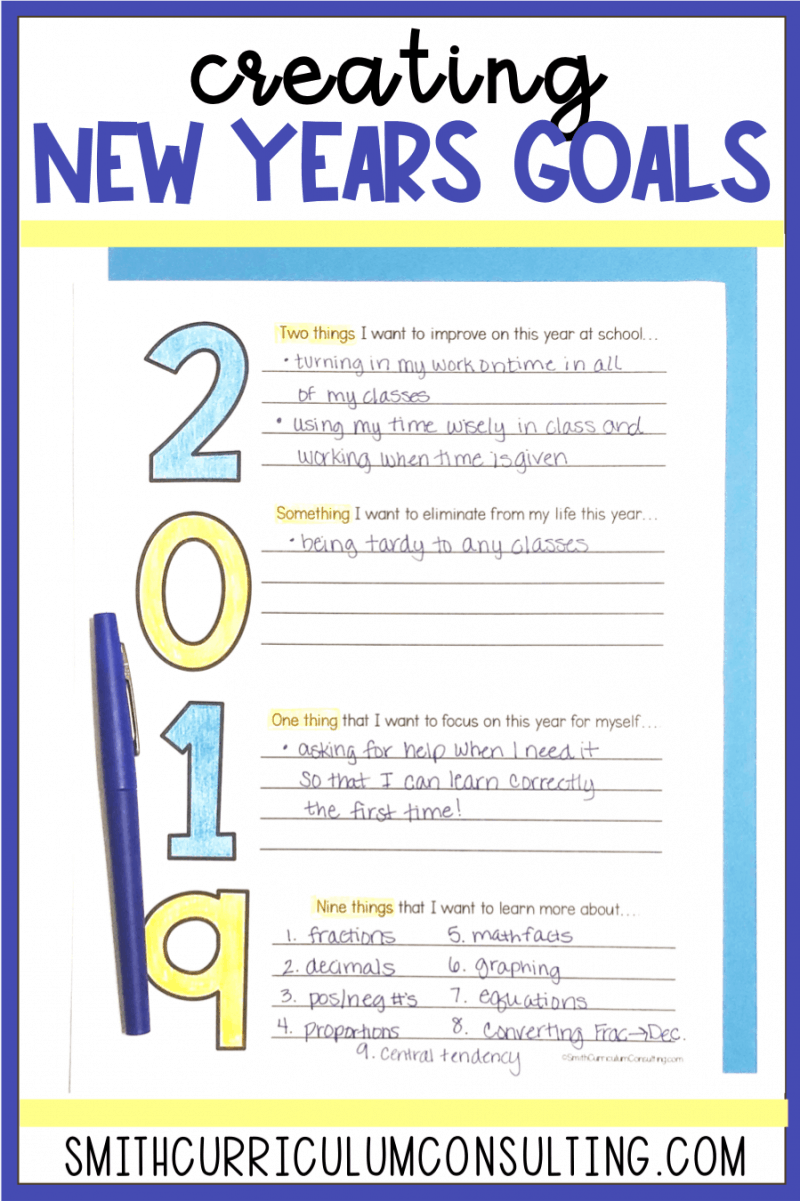 creating
NEW YEARS GOALS
2
Two things I want to improve on this year at school...
• turning in my work on time in all
of my classes
• using my time wisely in class and
working when time is given
0
Something I want to eliminate from my life this year...
• being tardy to any classes
1
One thing that I want to focus on this year for myself...
• asking for help when I need it
so that I can learn correctly
the first time!
9
Nine things that I want to learn more about....
1. fractions 5. math facts
2. decimals 6. graphing
3. pos/neg #'s 7. equations
4. proportions 8. converting Frac→Dec.
9. central tendency
©SmithCurriculumConsulting.com
SMITHCURRICULUMCONSULTING.COM